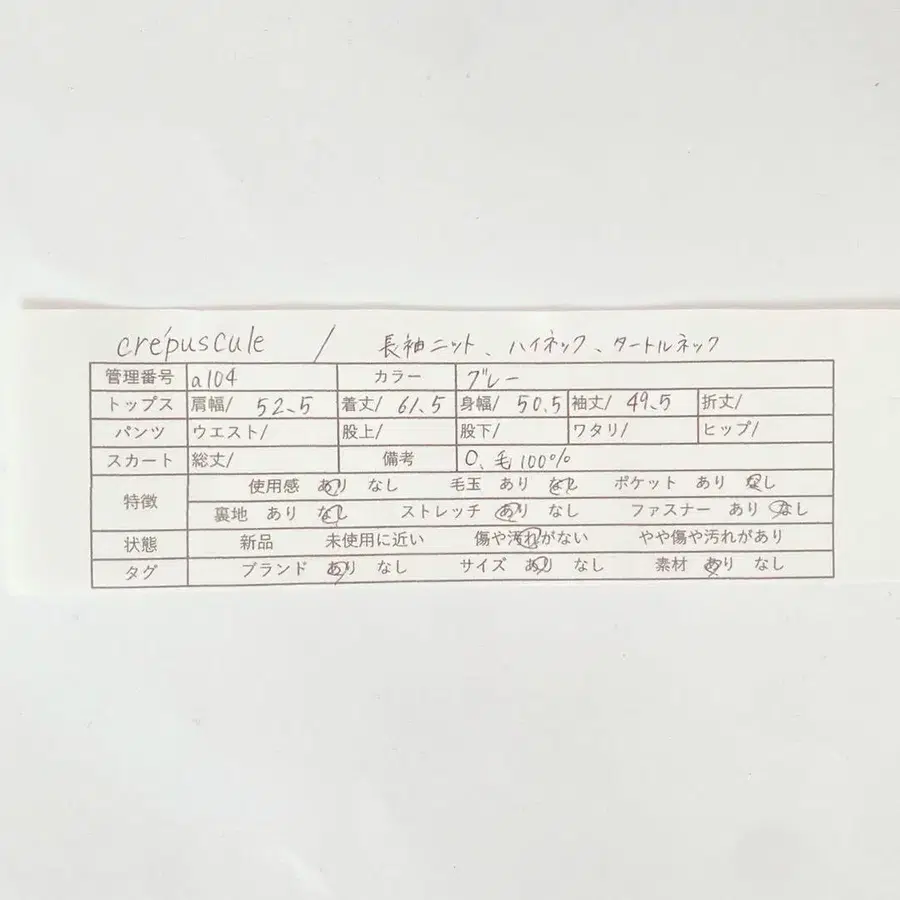 crépuscule / 長袖ニット、ハイネック、タートルネック
管理番号 a104 カラー グレー
トップス 肩幅/ 52.5 着丈/ 61.5 身幅/ 50.5 袖丈/ 49.5 折丈/
パンツ ウエスト/ 股上/ 股下/ ワタリ/ ヒップ/
スカート 総丈/ 備考 0、毛100%
特徴 使用感 あり なし 毛玉 あり なし ポケット あり なし
裏地 あり なし ストレッチ あり なし ファスナー あり なし
状態 新品 未使用に近い 傷や汚れがない やや傷や汚れがあり
タグ ブランド あり なし サイズ あり なし 素材 あり なし